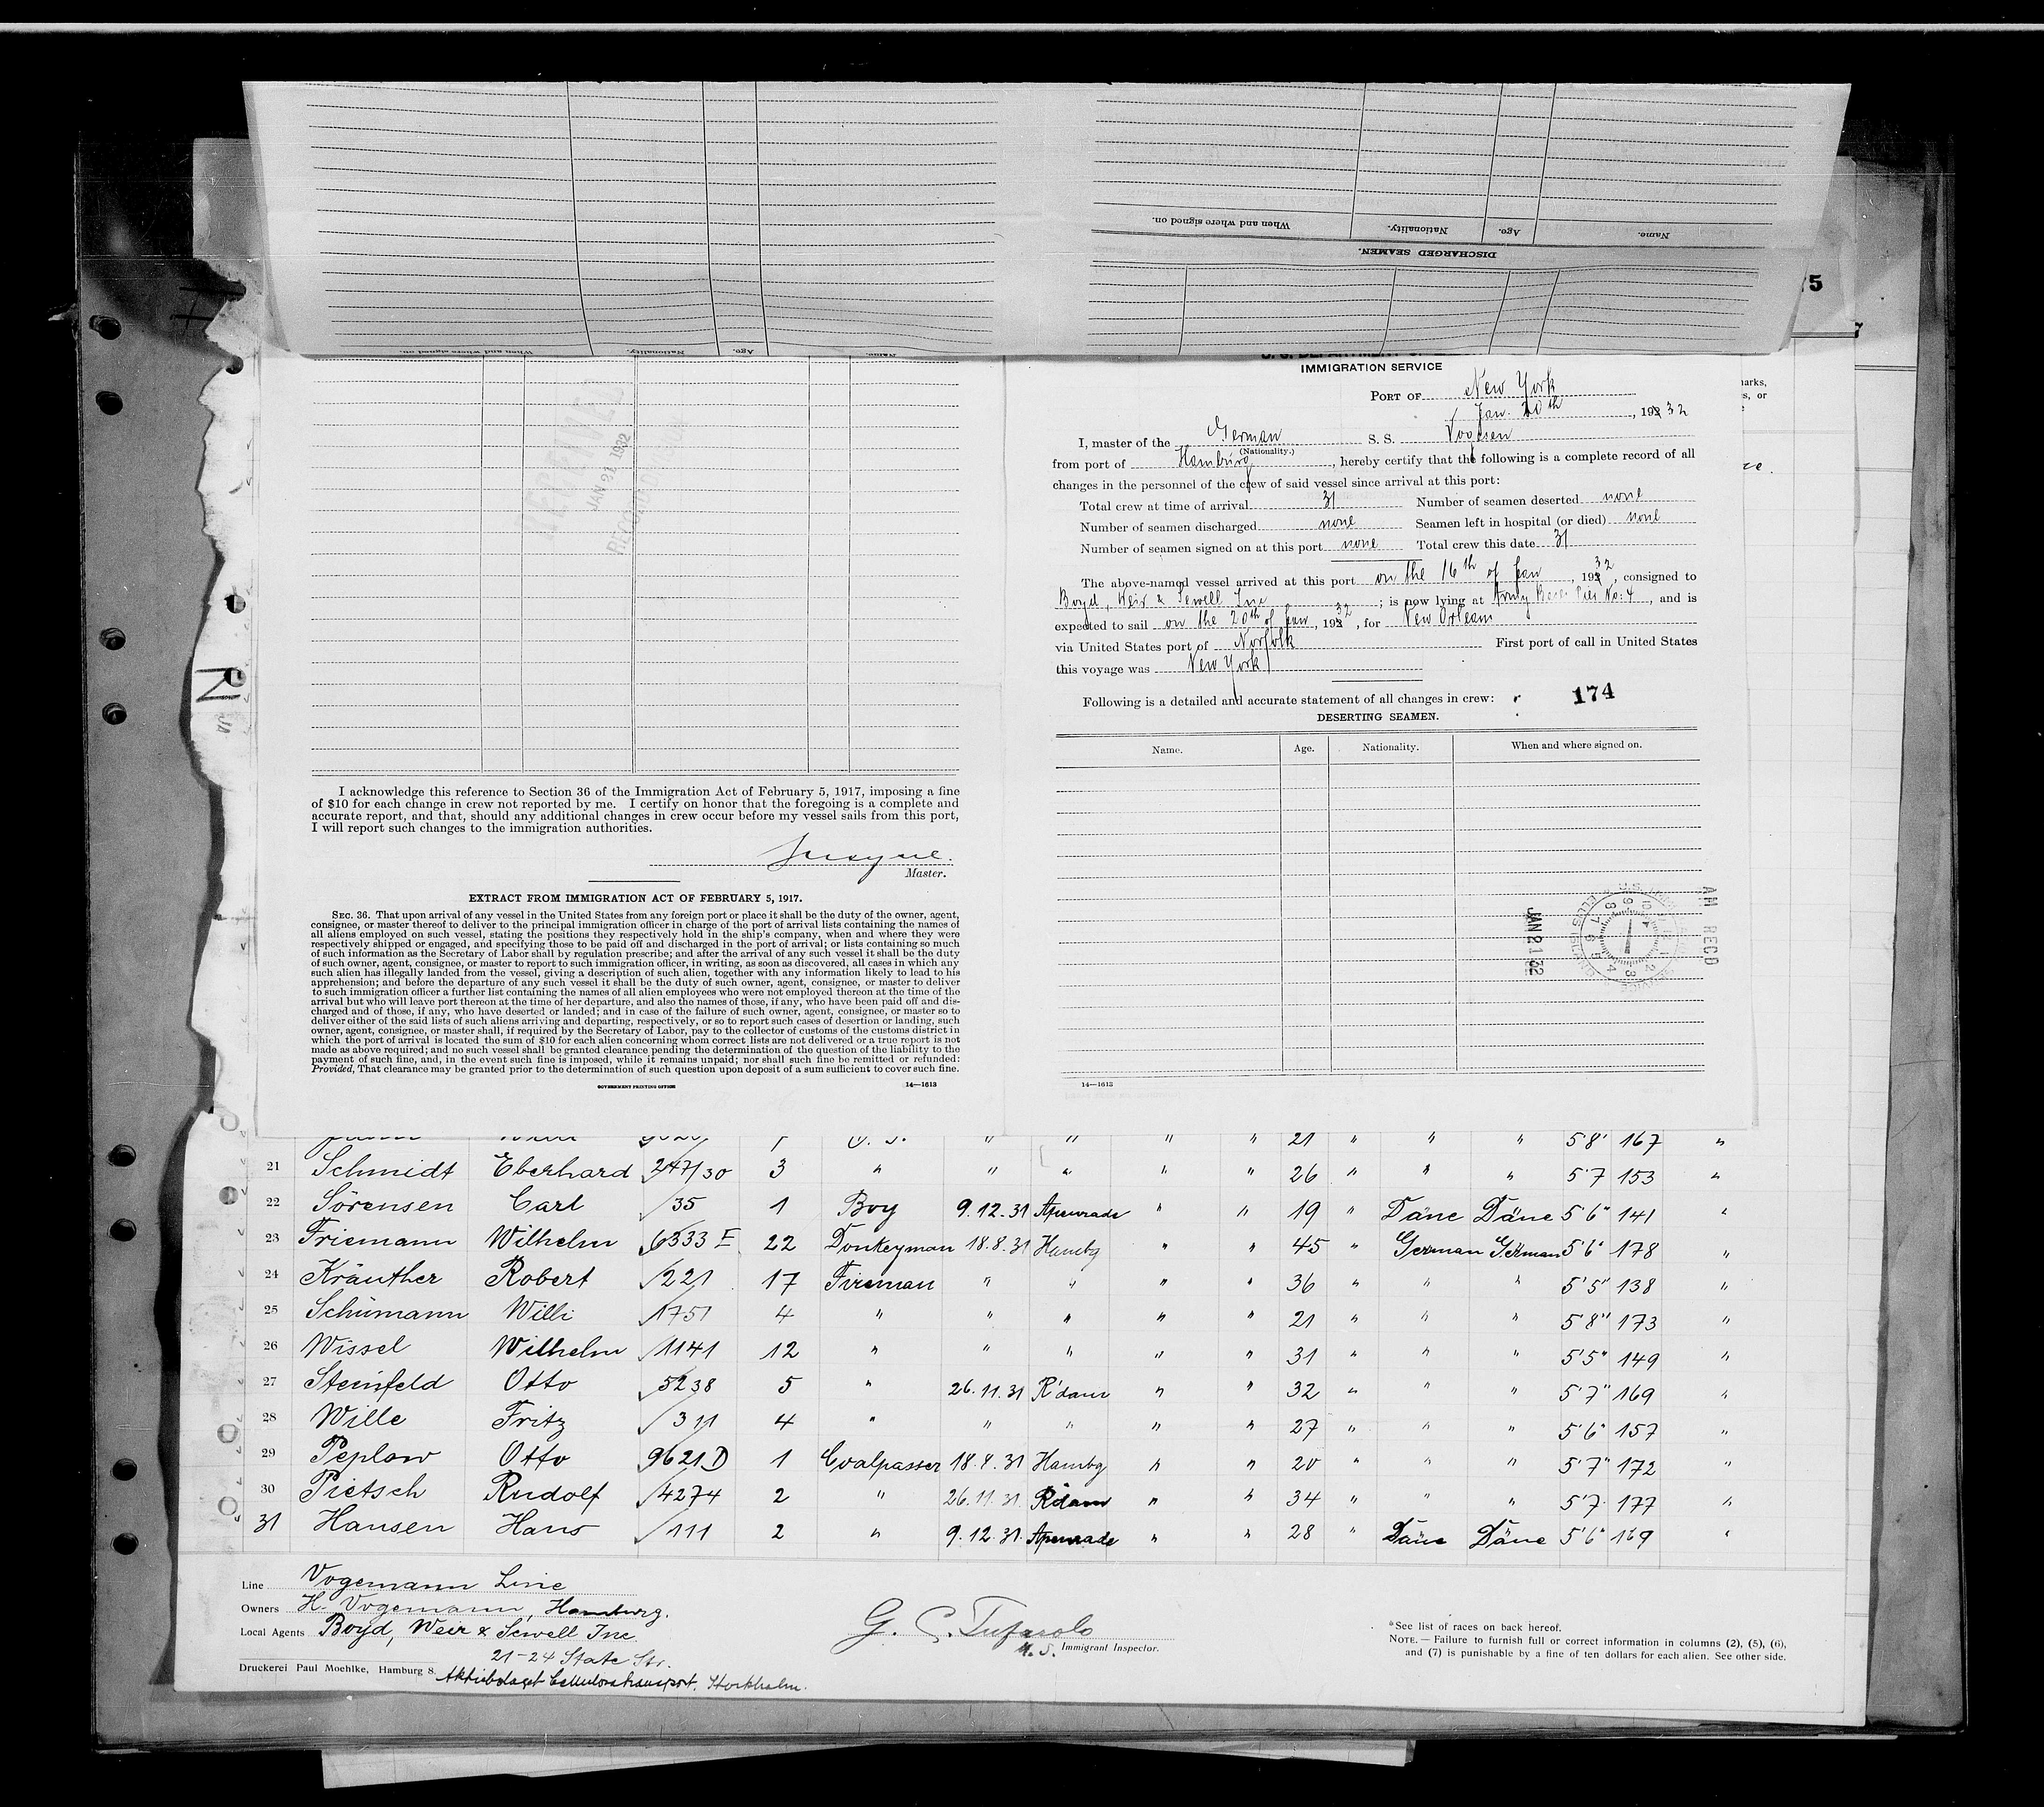 Name.
Age.
Nationality.
When and where signed on.
DISCHARGED SEAMEN.
When and where signed on.
Nationality.
Age.
Name.
75
IMMIGRATION SERVICE
PORT OF New York
Jan. 20th, 1932
I, master of the German S. S. Vogesen
(Nationality.)
from port of Hamburg, hereby certify that the following is a complete record of all
changes in the personnel of the crew of said vessel since arrival at this port:
Total crew at time of arrival 31 Number of seamen deserted none
Number of seamen discharged none Seamen left in hospital (or died) none
Number of seamen signed on at this port none Total crew this date 31
The above-named vessel arrived at this port on the 16th of Jan, 1932, consigned to
Boyd, Weir & Sewell Inc; is now lying at Army Base Pier No: 4, and is
expected to sail on the 20th of Jan, 1932, for New Orleans
via United States port of Norfolk First port of call in United States
this voyage was New York
Following is a detailed and accurate statement of all changes in crew: 174
DESERTING SEAMEN.
Name. Age. Nationality. When and where signed on.
AM RECD
JAN 21 32
14—1613
JAN 21 1932
I acknowledge this reference to Section 36 of the Immigration Act of February 5, 1917, imposing a fine
of $10 for each change in crew not reported by me. I certify on honor that the foregoing is a complete and
accurate report, and that, should any additional changes in crew occur before my vessel sails from this port,
I will report such changes to the immigration authorities.
Master.
EXTRACT FROM IMMIGRATION ACT OF FEBRUARY 5, 1917.
SEC. 36. That upon arrival of any vessel in the United States from any foreign port or place it shall be the duty of the owner, agent,
consignee, or master thereof to deliver to the principal immigration officer in charge of the port of arrival lists containing the names of
all aliens employed on such vessel, stating the positions they respectively hold in the ship's company, when and where they were
respectively shipped or engaged, and specifying those to be paid off and discharged in the port of arrival; or lists containing so much
of such information as the Secretary of Labor shall by regulation prescribe; and after the arrival of any such vessel it shall be the duty
of such owner, agent, consignee, or master to report to such immigration officer, in writing, as soon as discovered, all cases in which any
such alien has illegally landed from the vessel, giving a description of such alien, together with any information likely to lead to his
apprehension; and before the departure of any such vessel it shall be the duty of such owner, agent, consignee, or master to deliver
to such immigration officer a further list containing the names of all alien employees who were not employed thereon at the time of the
arrival but who will leave port thereon at the time of her departure, and also the names of those, if any, who have been paid off and dis-
charged and of those, if any, who have deserted or landed; and in case of the failure of such owner, agent, consignee, or master so to
deliver either of the said lists of such aliens arriving and departing, respectively, or so to report such cases of desertion or landing, such
owner, agent, consignee, or master shall, if required by the Secretary of Labor, pay to the collector of customs of the customs district in
which the port of arrival is located the sum of $10 for each alien concerning whom correct lists are not delivered or a true report is not
made as above required; and no such vessel shall be granted clearance pending the determination of the question of the liability to the
payment of such fine, and, in the event such fine is imposed, while it remains unpaid; nor shall such fine be remitted or refunded:
Provided, That clearance may be granted prior to the determination of such question upon deposit of a sum sufficient to cover such fine.
GOVERNMENT PRINTING OFFICE 14—1613
" " " " 21 " " " 5'8" 167 "
21 Schmidt Eberhard 247/30 3 " " " " " 26 " " " 5'7 153 "
22 Sörensen Carl 35 1 Boy 9.12.31 Apenrade " " 19 " Däne Däne 5'6" 141 "
23 Friemann Wilhelm 6333 E 22 Donkeyman 18.8.31 Hambg " " 45 " German German 5'6" 178 "
24 Kräuther Robert 221 17 Fireman " " " " 36 " " " 5'5" 138 "
25 Schümann Willi 1751 4 " " " " " 21 " " " 5'8" 173 "
26 Wissel Wilhelm 1141 12 " " " " " 31 " " " 5'5" 149 "
27 Steinfeld Otto 5238 5 " 26.11.31 R'dam " " 32 " " " 5'7" 169 "
28 Wille Fritz 311 4 " " " " " 27 " " " 5'6" 157 "
29 Peplow Otto 9621 D 1 Coalpasser 18.8.31 Hambg " " 20 " " " 5'7" 172 "
30 Pietsch Rudolf 4274 2 " 26.11.31 R'dam " " 34 " " " 5'7 177 "
31 Hansen Hans 111 2 " 9.12.31 Apenrade " " 28 " Däne Däne 5'6" 169 "
Line Vogemann Line
Owners H. Vogemann, Hamburg.
Local Agents Boyd, Weir & Sewell Inc
21-24 State Str.
Druckerei Paul Moehlke, Hamburg 8. Aktiebolaget Cellulosatransport, Stockholm.
G. C. Tufarolo
U.S. Immigrant Inspector.
*See list of races on back hereof.
NOTE.—Failure to furnish full or correct information in columns (2), (5), (6),
and (7) is punishable by a fine of ten dollars for each alien. See other side.